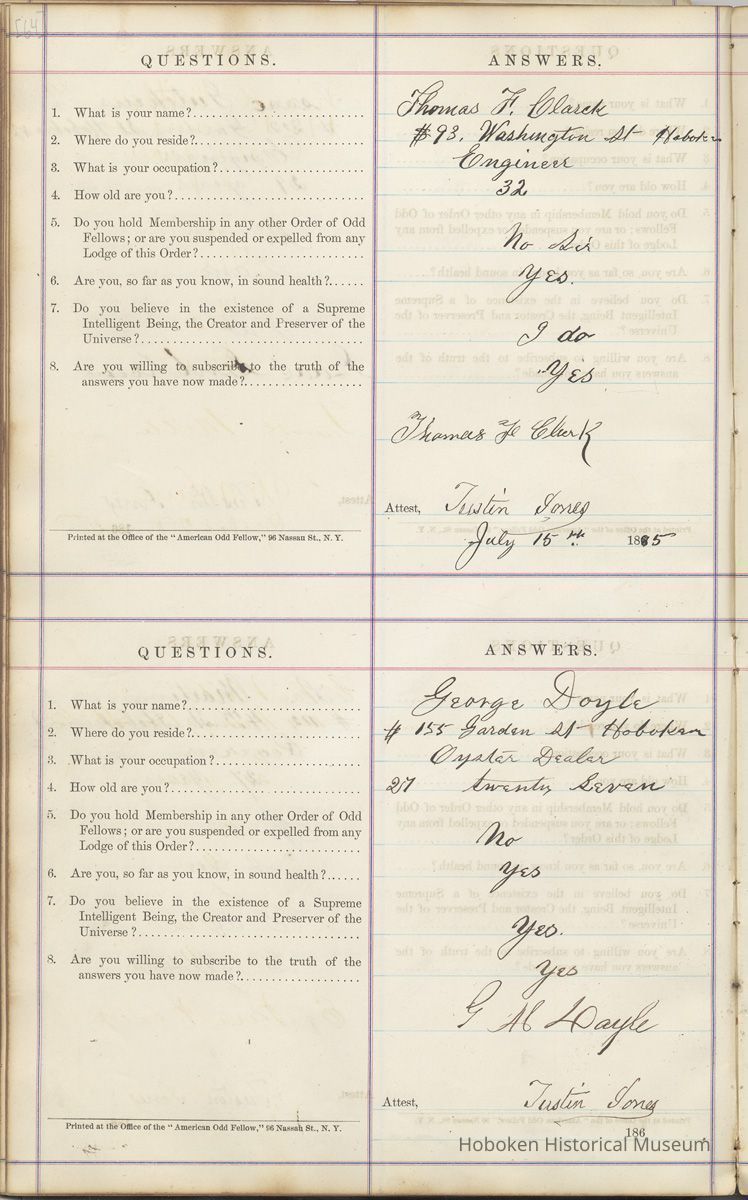 [64]
QUESTIONS.
ANSWERS.
1. What is your name?
Thomas F. Clarck
2. Where do you reside?
#93. Washington St Hoboken
3. What is your occupation?
Engineer
4. How old are you?
32
5. Do you hold Membership in any other Order of Odd
Fellows; or are you suspended or expelled from any
Lodge of this Order?
No Sir
6. Are you, so far as you know, in sound health?
Yes.
7. Do you believe in the existence of a Supreme
Intelligent Being, the Creator and Preserver of the
Universe?
I do
8. Are you willing to subscribe to the truth of the
answers you have now made?
Yes
Thomas F Clark
Attest, Justin Jones
Printed at the Office of the "American Odd Fellow," 96 Nassau St., N. Y.
July 15th 1875
QUESTIONS.
ANSWERS.
1. What is your name?
George Doyle
2. Where do you reside?
# 155 Garden St Hoboken
3. What is your occupation?
Oyster Dealer
4. How old are you?
27 twenty Seven
5. Do you hold Membership in any other Order of Odd
Fellows; or are you suspended or expelled from any
Lodge of this Order?
No
6. Are you, so far as you know, in sound health?
Yes
7. Do you believe in the existence of a Supreme
Intelligent Being, the Creator and Preserver of the
Universe?
Yes.
8. Are you willing to subscribe to the truth of the
answers you have now made?
Yes
G M Doyle
Attest, Justin Jones
Printed at the Office of the "American Odd Fellow," 96 Nassau St., N. Y.
186
Hoboken Historical Museum